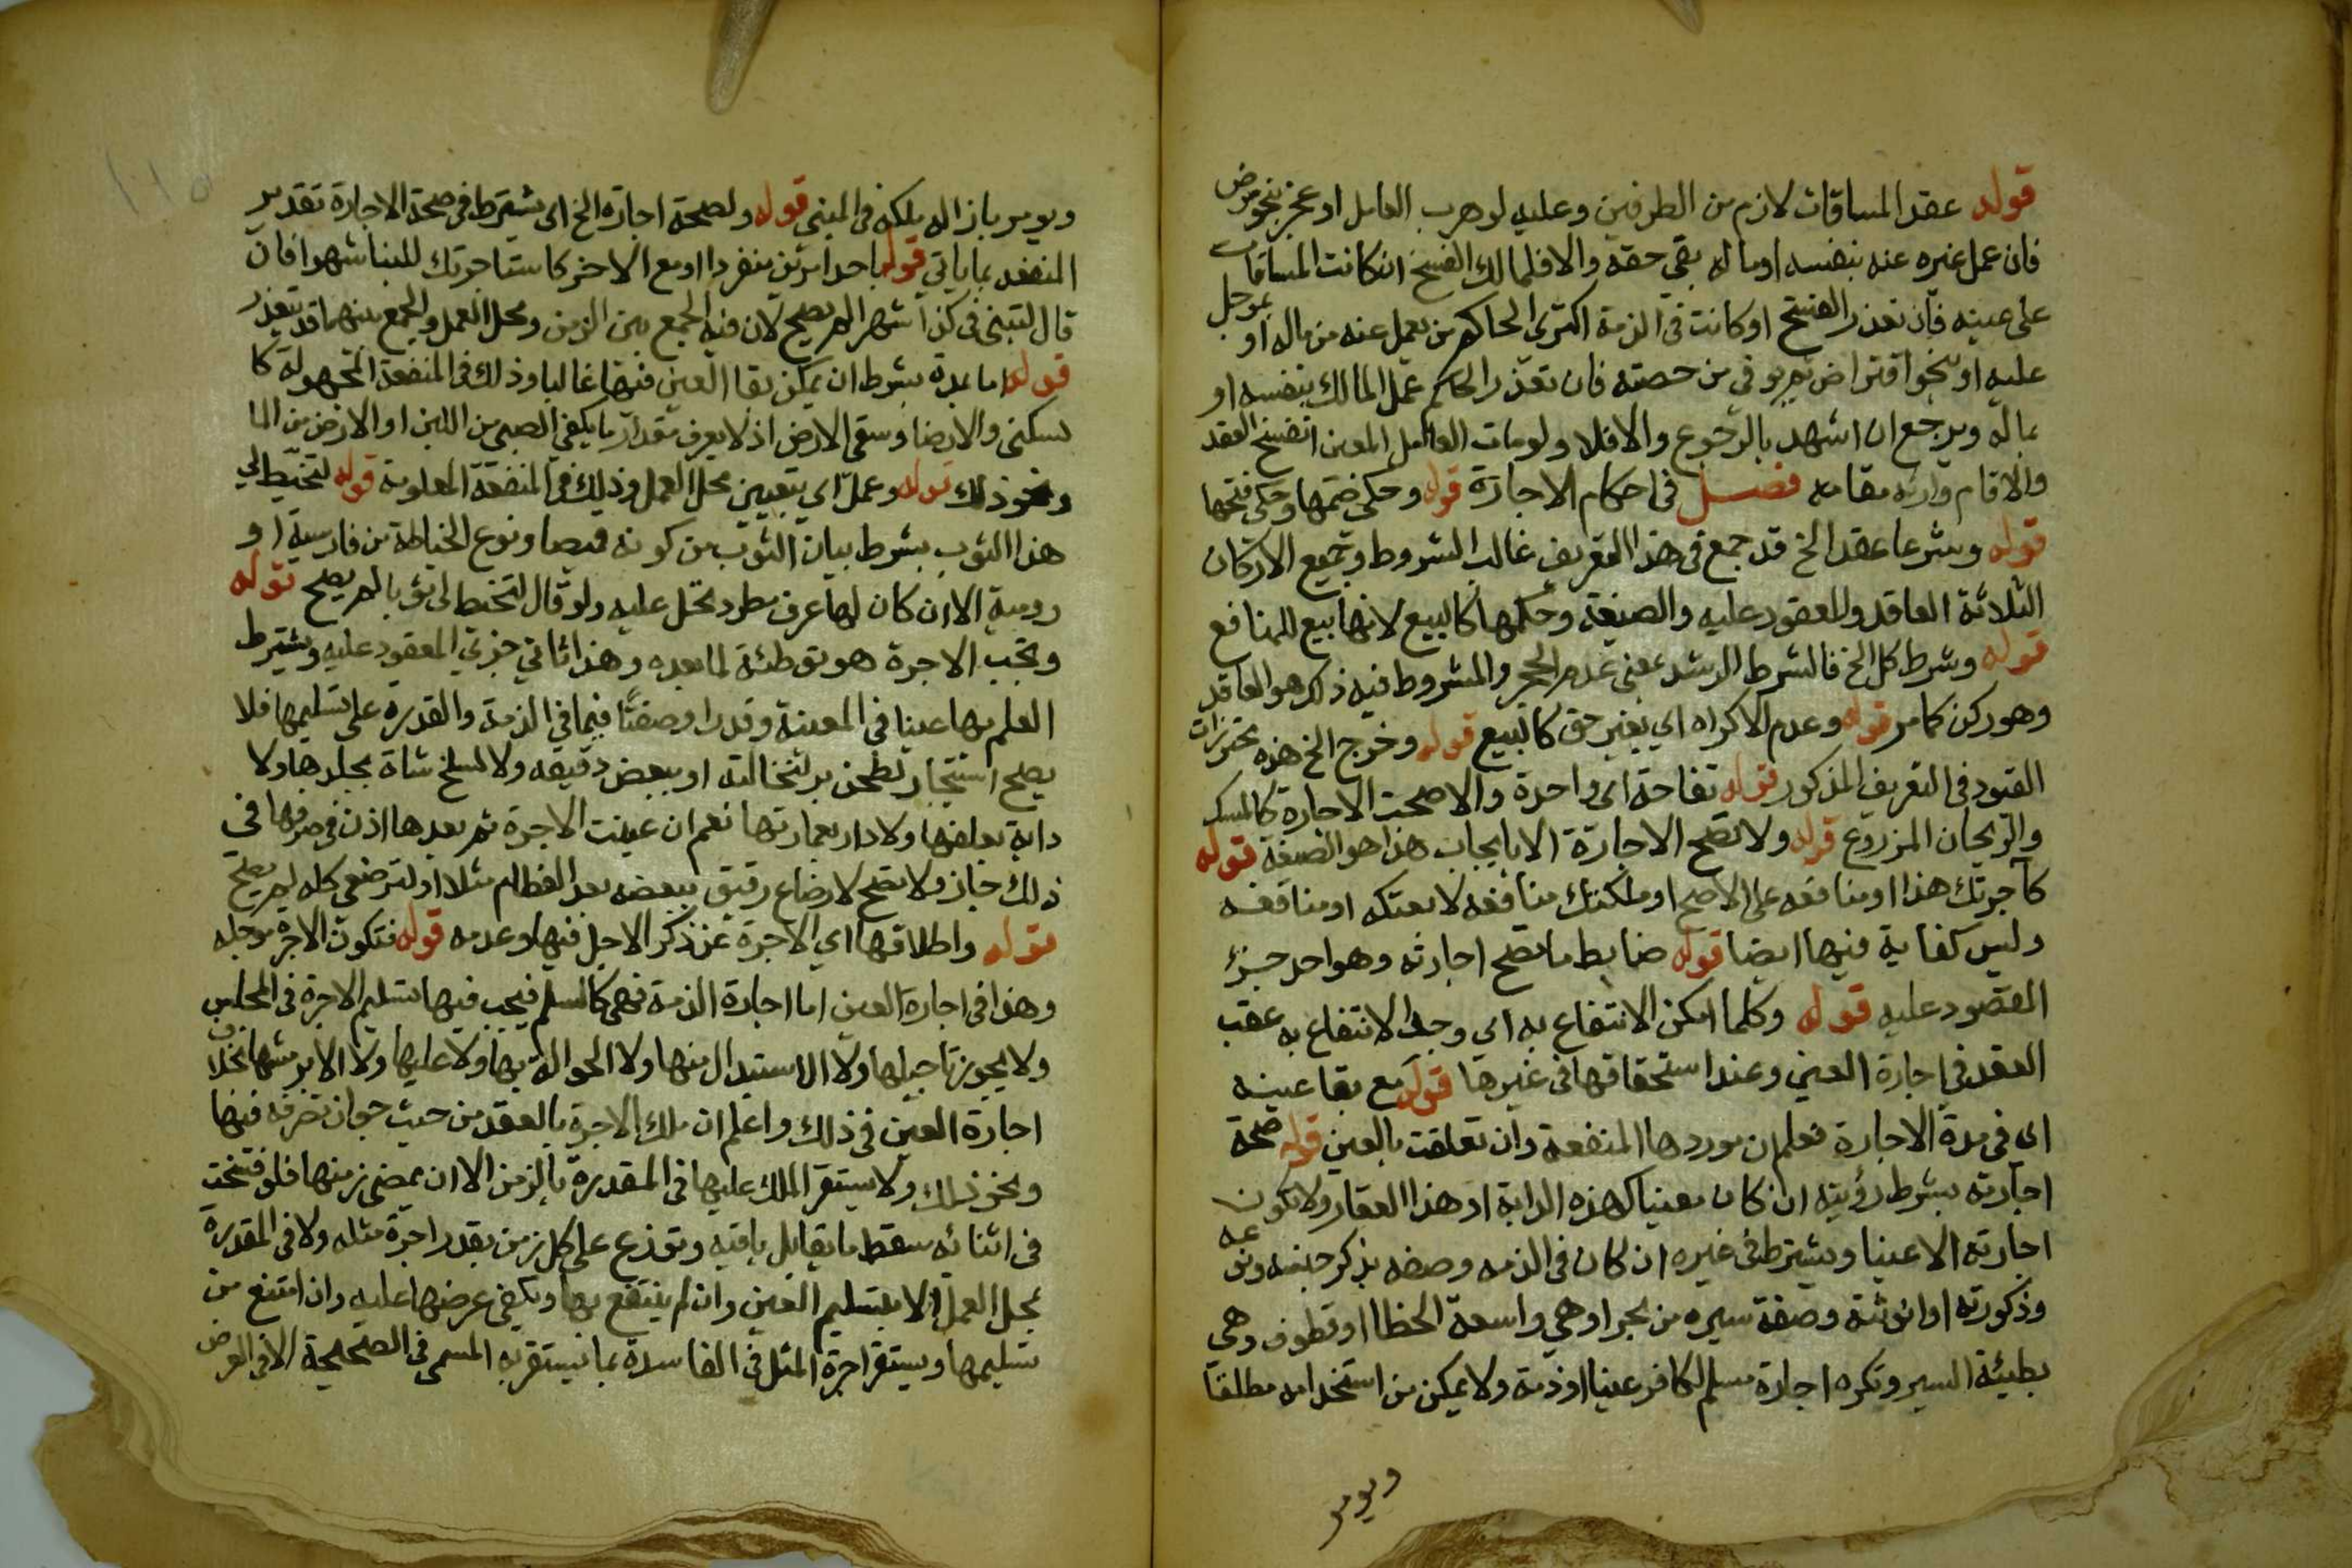 قوله عقد المساقات لازم من الطرفين وعليه لو هرب العامل او عجز بنحو مرض
فان عمل غيره عنه بنفسه او ماله بقى حقه والا فللمالك الفسخ ان كانت المساقات
على عينه فان تعذر الفسخ او كانت في الذمة اكترى الحاكم من يعمل عنه من ماله او بموجل
عليه او بنحو اقتراض ثم يوفي من حصته فان تعذر الحاكم عمل المالك بنفسه او
بماله ويرجع ان اشهد بالرجوع والا فلا ولو مات العامل المعين انفسخ العقد
والا قام وارثه مقامه فصل في احكام الاجارة قوله وحكى ضمها وحكى فتحها
قوله وشرعا عقد الخ قد جمع في هذا التعريف غالب الشروط وجميع الاركان
الثلاثة العاقد والمعقود عليه والصيغة وحكمها كالبيع لانها بيع للمنافع
قوله وشرط كل الخ فالشرط الرشد بمعنى عدم الحجر والمشروط فيه ذلك هو العاقد
وهو ركن كما مر قوله وعدم الاكراه اي بغير حق كالبيع قوله وخرج الخ هذه محترزات
القيود في التعريف المذكور قوله تفاحة اي واحدة والا صحت الاجارة كالمسك
والريحان المزروع قوله ولا تصح الاجارة الا بايجاب هذا هو الصيغة قوله
كآجرتك هذا او منافعه على الاصح او ملكتك منافعه لا بعتكه او منافعه
وليس كفاية فيها ايضا قوله ضابط ما تصح اجارته وهو احد جزئ
المقصود عليه قوله وكلما امكن الانتفاع به اي وجد الانتفاع به عقب
العقد في اجارة العين وعند استحقاقها في غيرها قوله مع بقا عينه
اي في مدة الاجارة فعلم ان موردها المنفعة وان تعلقت بالعين قوله صحة
اجارته بشرط رؤيته ان كان معينا كهذه الدابة او هذا العقار ولا تكون
اجارته الا عينا ويشترط في غيره ان كان في الذمه وصفه بذكر جنسه ونوعه
وذكورته او انوثته وصفة سيره من بحر او هي واسعة الخطا او قطوف وهي
بطيئة السير وتكره اجارة مسلم لكافر عينا او ذمة ولا يمكن من استخدامه مطلقا
ويومر
ويومر بازاله ملكه في المبنى قوله ولصحة اجارة الخ اي يشترط في صحة الاجارة تقدير
المنفعه بما ياتي قوله باحد امرين منفردا او مع الاخر كاستاجرتك للبنا شهرا فان
قال لتبني في كذا شهرا لم يصح لان فيه الجمع بين الزمن ومحل العمل والجمع بينهما قد يتعذر
قوله اما بمدة بشرط ان يمكن بقا العين فيها غالبا وذلك في المنفعة المجهولة كا
لسكنى والارضاع وسقى الارض اذ لا يعرف مقدار ما يكفي الصبي من اللبن او الارض من الما
ونحو ذلك قوله وعمل اي بتعيين محل العمل وذلك في المنفعة المعلومة قوله لتخيط لي
هذا الثوب بشرط بيان الثوب من كونه قميصا ونوع الخياطة من فارسية او
رومية الا ان كان لها عرف مطرد تحمل عليه ولو قال لتخيط لي ثوبا لم يصح قوله
وتجب الاجرة هو توطئة لما بعده وهذا ثاني جزئي المعقود عليه ويشترط
العلم بها عينا في المعينة وقدرا وصفتا فيما في الذمة والقدرة على تسليمها فلا
يصح استئجار لطحن بر لنخالته او ببعض دقيقه ولا لسلخ شاة بجلدها ولا
دابة بعلفها ولا دار بعمارتها نعم ان عينت الاجرة ثم بعدها اذن في صرفها في
ذلك جاز ولا تصح لارضاع رقيق ببعضه بعد الفطام مثلا او لترضعي كله لم يصح
قوله واطلاقها اي الاجرة عن ذكر الاجل فيها وعدمه قوله فتكون الاجرة موجله
وهذا في اجارة العين اما اجارة الذمة فهي كالسلم فيجب فيها تسليم الاجرة في المجلس
ولا يجوز تاجيلها ولا الاستبدال منها ولا الحوالة بها ولا عليها ولا الابر منها بخلاف
اجارة العين في ذلك واعلم ان ملك الاجرة بالعقد من حيث جواز تصرفه فيها
ونحو ذلك ولا يستقر الملك عليها في المقدرة بالزمن الا ان بمضي زمنها فلو فسخت
في اثنائه سقط ما يقابل باقيه وتوزع على كل زمن بقدر اجرة مثله ولا في المقدرة
بمحل العمل الا بتسليم العين وان لم ينتفع بها ويكفي عرضها عليه وان امتنع من
تسليمها ويستقر اجرة المثل في الفاسدة بما يستقر به المسمى في الصحيحة الا في العرض